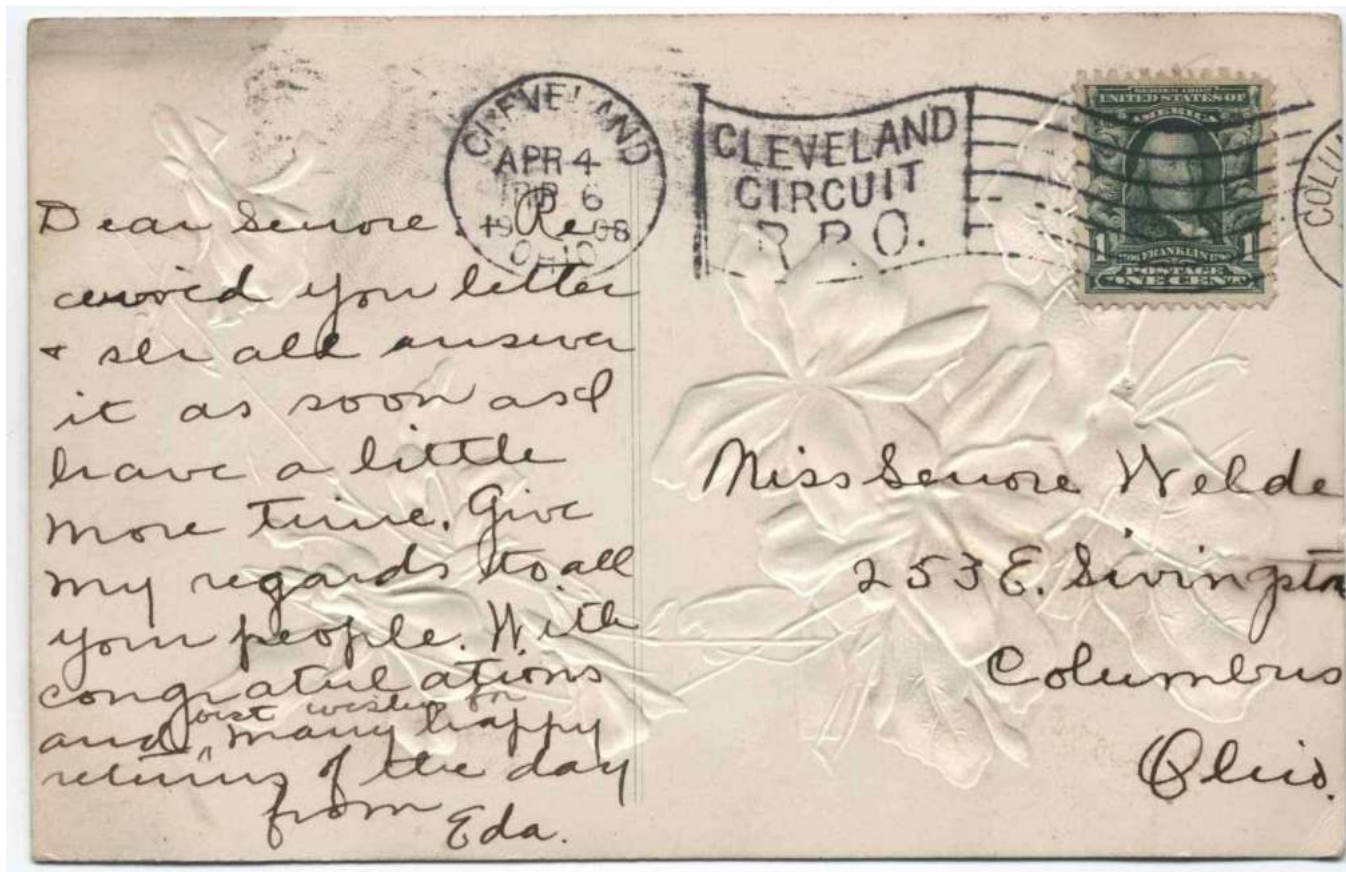 CLEVELAND
APR 4
6
1908
OHIO
CLEVELAND
CIRCUIT
R.P.O.
SERIES 1902
UNITED STATES OF
AMERICA
1706 FRANKLIN 1790
1 POSTAGE 1
ONE CENT
COLU
Dear Senore. Re
ceived you letter
+ shall answer
it as soon as I
have a little
more time. Give
my regards to all
your people. With
congratulations
best wishes for
and many happy
returns of the day
from Eda.
Miss Senore Welde
253 E. Livingston
Columbus
Ohio.